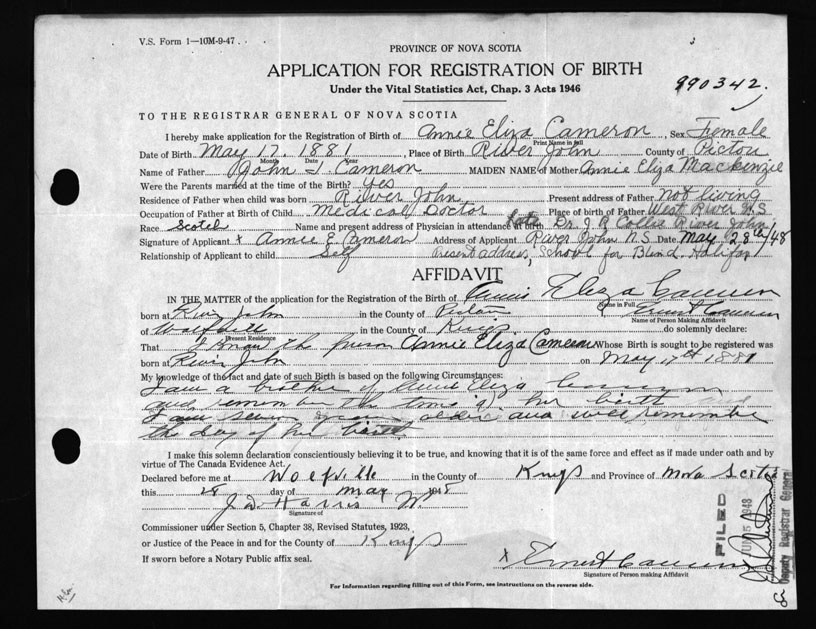 V.S. Form 1—10M-9-47
PROVINCE OF NOVA SCOTIA
APPLICATION FOR REGISTRATION OF BIRTH
Under the Vital Statistics Act, Chap. 3 Acts 1946
990342
TO THE REGISTRAR GENERAL OF NOVA SCOTIA
I hereby make application for the Registration of Birth of Annie Eliza Cameron, Sex Female
Print Name in full
Date of Birth May 17, 1881, Place of Birth River John County of Pictou
Month Date Year
Name of Father John Cameron MAIDEN NAME of Mother Annie Eliza Mackenzie
Were the Parents married at the time of the Birth? yes
Residence of Father when child was born River John Present address of Father not living
Occupation of Father at Birth of Child Medical Doctor Place of birth of Father West River N.S
Race Scotch Name and present address of Physician in attendance at birth late Dr. J. Collie River John
Signature of Applicant x Annie E Cameron Address of Applicant River John N.S. Date May 28th/48
Relationship of Applicant to child Self Present address, School for Blind, Halifax
AFFIDAVIT
IN THE MATTER of the application for the Registration of the Birth of Annie Eliza Cameron
Name in Full
born at River John in the County of Pictou Ernest Cameron
Name of Person Making Affidavit
of Wolfville in the County of Kings do solemnly declare:
Present Residence
That I know the person Annie Eliza Cameron Whose Birth is sought to be registered was
born at River John on May 17th 1881
My knowledge of the fact and date of such Birth is based on the following Circumstances:
I am a brother of Annie Eliza Cameron
and remember the time of her birth
I am seven years older and well remember
the day of her birth
I make this solemn declaration conscientiously believing it to be true, and knowing that it is of the same force and effect as if made under oath and by
virtue of The Canada Evidence Act.
Declared before me at Wolfville in the County of Kings and Province of Nova Scotia
this 28 day of May 1948
J. D. Harris
Signature of
Commissioner under Section 5, Chapter 38, Revised Statutes, 1923,
or Justice of the Peace in and for the County of Kings
If sworn before a Notary Public affix seal.
x Ernest Cameron
Signature of Person making Affidavit
For Information regarding filling out of this Form, see instructions on the reverse side.
FILED
1948
Deputy Registrar General